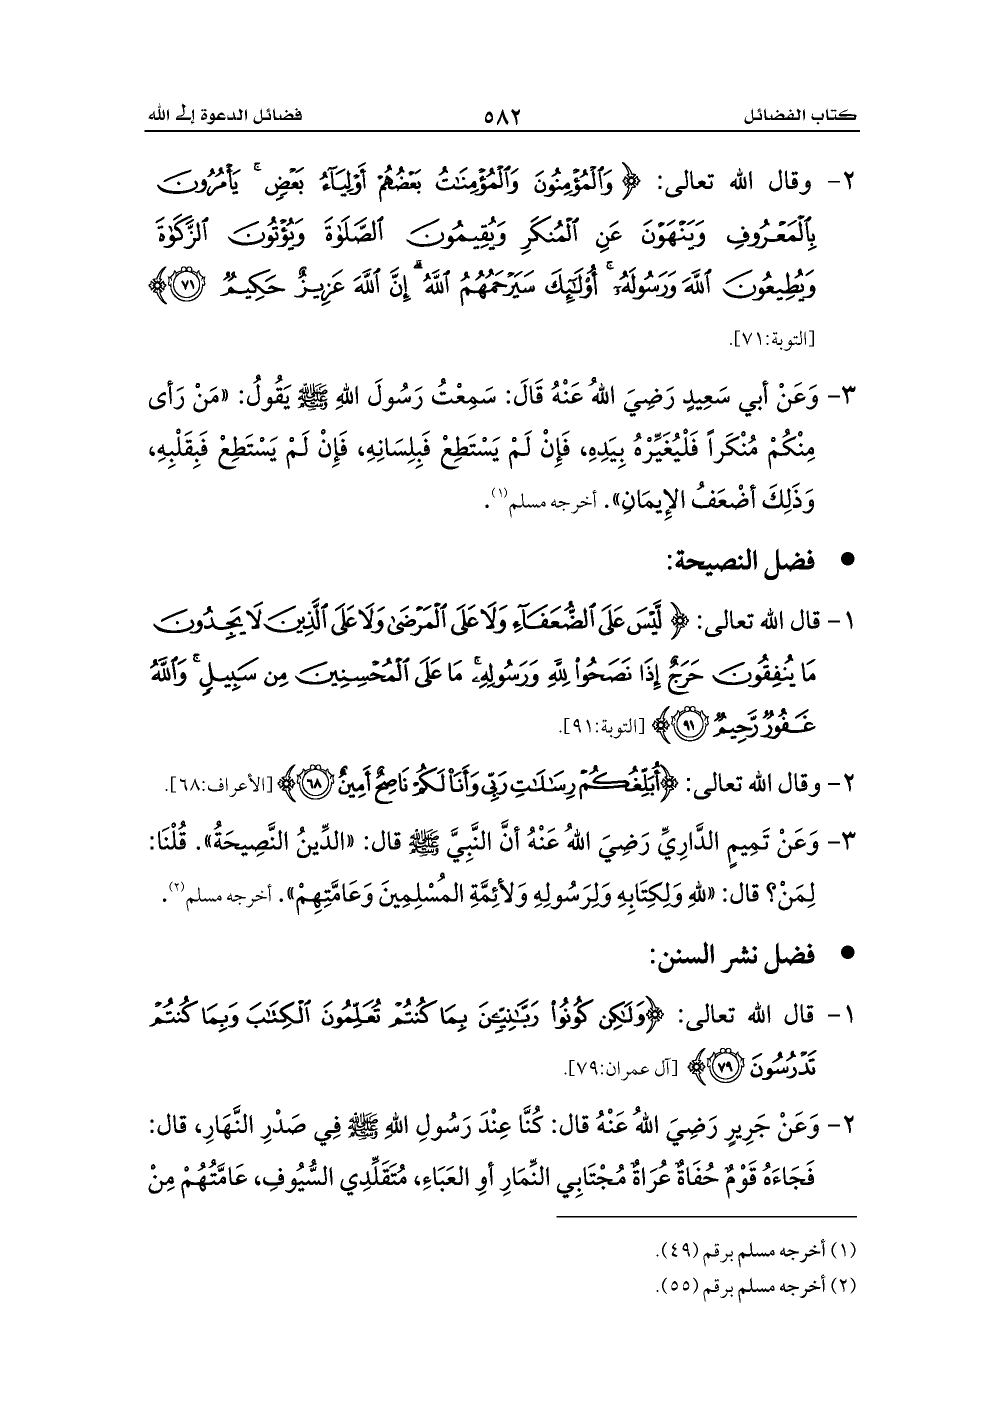 كتاب الفضائل ٥٨٢ فضائل الدعوة إلى الله
٢- وقال الله تعالى: ﴿ وَٱلْمُؤْمِنُونَ وَٱلْمُؤْمِنَٰتُ بَعْضُهُمْ أَوْلِيَآءُ بَعْضٍ ۚ يَأْمُرُونَ
بِٱلْمَعْرُوفِ وَيَنْهَوْنَ عَنِ ٱلْمُنكَرِ وَيُقِيمُونَ ٱلصَّلَوٰةَ وَيُؤْتُونَ ٱلزَّكَوٰةَ
وَيُطِيعُونَ ٱللَّهَ وَرَسُولَهُۥٓ ۚ أُو۟لَٰٓئِكَ سَيَرْحَمُهُمُ ٱللَّهُ ۗ إِنَّ ٱللَّهَ عَزِيزٌ حَكِيمٌ ٧١ ﴾
[التوبة:٧١].
٣- وَعَنْ أبي سَعِيدٍ رَضِيَ اللهُ عَنْهُ قَالَ: سَمِعْتُ رَسُولَ اللهِ ﷺ يَقُولُ: «مَنْ رَأى
مِنْكُمْ مُنْكَراً فَلْيُغَيِّرْهُ بِيَدِهِ، فَإِنْ لَمْ يَسْتَطِعْ فَبِلِسَانِهِ، فَإِنْ لَمْ يَسْتَطِعْ فَبِقَلْبِهِ،
وَذَلِكَ أضْعَفُ الإيمَانِ». أخرجه مسلم(١).
• فضل النصيحة:
١- قال الله تعالى: ﴿ لَّيْسَ عَلَى ٱلضُّعَفَآءِ وَلَا عَلَى ٱلْمَرْضَىٰ وَلَا عَلَى ٱلَّذِينَ لَا يَجِدُونَ
مَا يُنفِقُونَ حَرَجٌ إِذَا نَصَحُوا۟ لِلَّهِ وَرَسُولِهِۦ ۚ مَا عَلَى ٱلْمُحْسِنِينَ مِن سَبِيلٍ ۚ وَٱللَّهُ
غَفُورٌ رَّحِيمٌ ٩١ ﴾ [التوبة:٩١].
٢- وقال الله تعالى: ﴿أُبَلِّغُكُمْ رِسَٰلَٰتِ رَبِّي وَأَنَا۠ لَكُمْ نَاصِحٌ أَمِينٌ ٦٨ ﴾ [الأعراف:٦٨].
٣- وَعَنْ تَمِيمٍ الدَّارِيِّ رَضِيَ اللهُ عَنْهُ أنَّ النَّبِيَّ ﷺ قال: «الدِّينُ النَّصِيحَةُ». قُلْنَا:
لِمَنْ؟ قال: «للهِ وَلِكِتَابِهِ وَلِرَسُولِهِ وَلأئِمَّةِ المُسْلِمِينَ وَعَامَّتِهِمْ». أخرجه مسلم(٢).
• فضل نشر السنن:
١- قال الله تعالى: ﴿وَلَٰكِن كُونُوا۟ رَبَّٰنِيِّـۧنَ بِمَا كُنتُمْ تُعَلِّمُونَ ٱلْكِتَٰبَ وَبِمَا كُنتُمْ
تَدْرُسُونَ ٧٩ ﴾ [آل عمران:٧٩].
٢- وَعَنْ جَرِيرٍ رَضِيَ اللهُ عَنْهُ قال: كُنَّا عِنْدَ رَسُولِ اللهِ ﷺ فِي صَدْرِ النَّهَارِ، قال:
فَجَاءَهُ قَوْمٌ حُفَاةٌ عُرَاةٌ مُجْتَابِي النِّمَارِ أوِ العَبَاءِ، مُتَقَلِّدِي السُّيُوفِ، عَامَّتُهُمْ مِنْ
(١) أخرجه مسلم برقم (٤٩).
(٢) أخرجه مسلم برقم (٥٥).